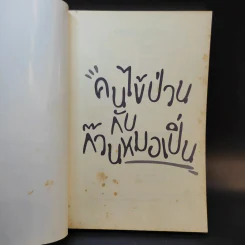 "คนไข้ป่วน
กับ
ก๊วนหมอเปิ่น